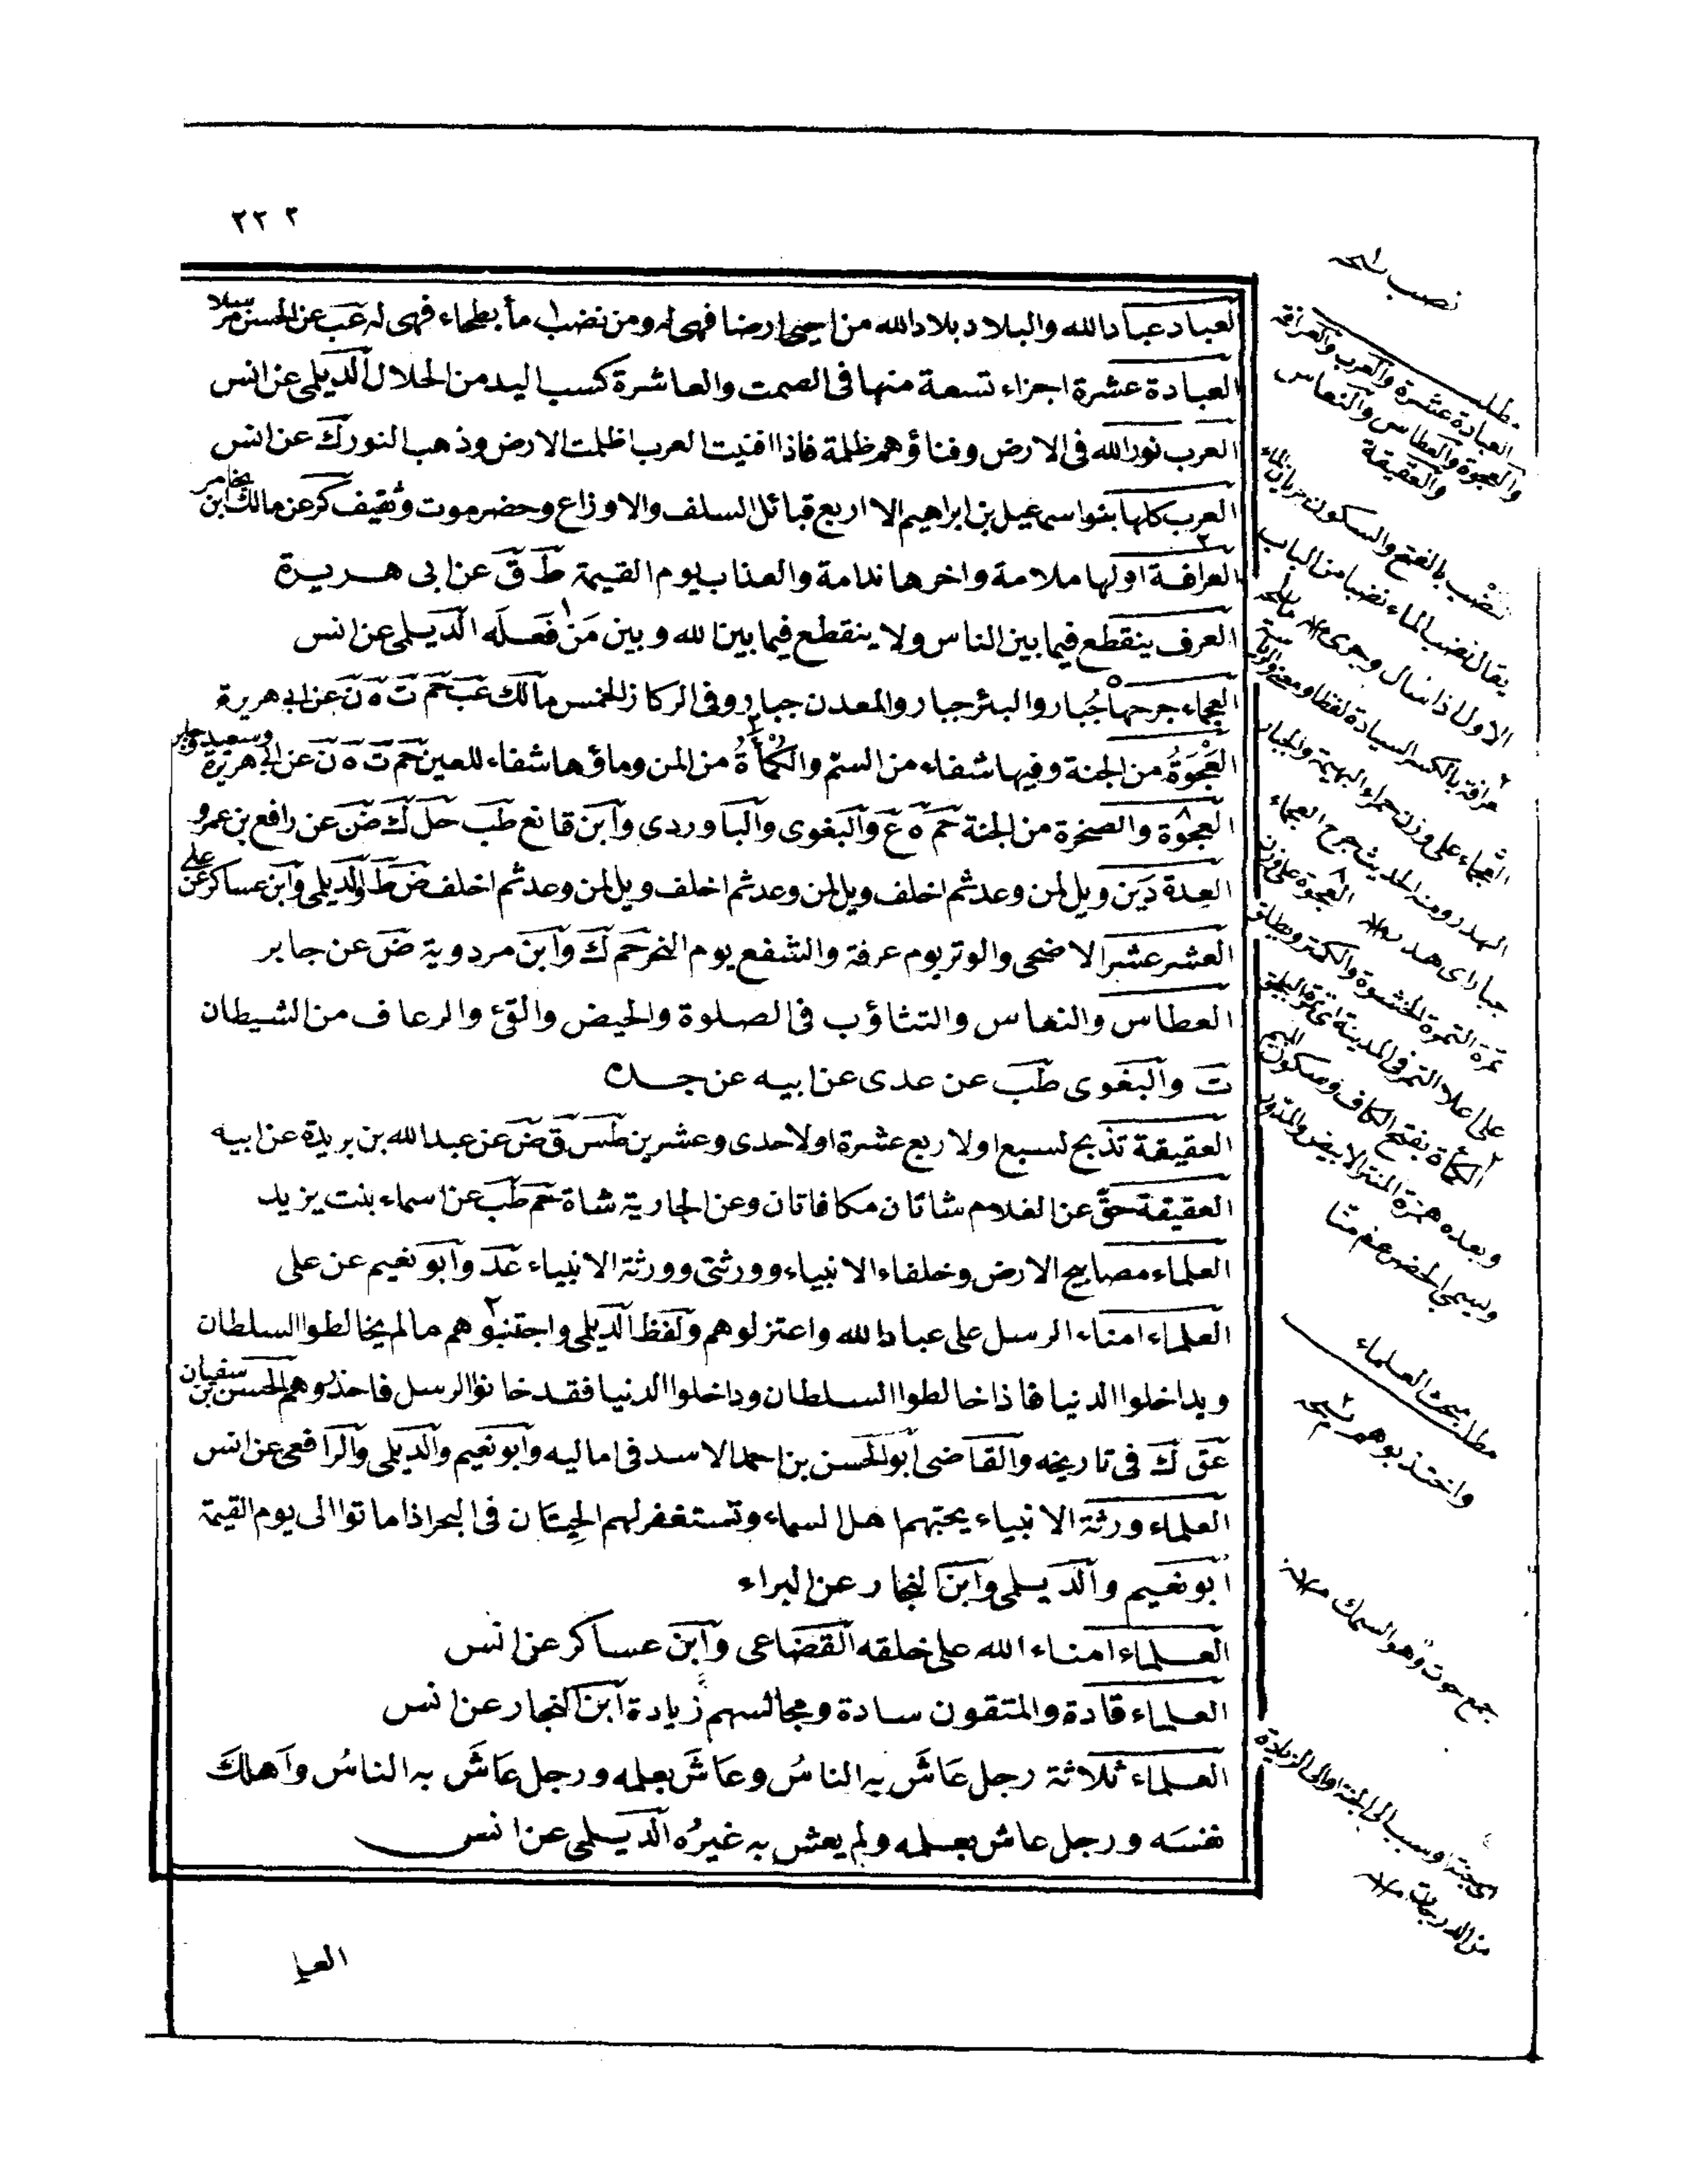 ٢٢٣
العباد عباد الله والبلاد بلاد الله من احيى ارضا فهى له ومن نضب ماءً بطحاء فهى له عب عن الحسن مرسلا
العبادة عشرة اجزاء تسعة منها فى الصمت والعاشرة كسب اليد من الحلال الديلمى عن انس
العرب نور الله فى الارض وفناؤهم ظلمة فاذا افنيت العرب اظلمت الارض وذهب النور ك عن انس
العرب كلها بنوا اسمعيل بن ابراهيم الا اربع قبائل السلف والاوزاع وحضرموت وثقيف كر عن مالك ابن يخامر
العرافة اولها ملامة واخرها ندامة والعذاب يوم القيمة ط ق عن ابى هريرة
العرف ينقطع فيما بين الناس ولا ينقطع فيما بين الله وبين مَنْ فَعَلَه الديلمى عن انس
العجماء جرحها جُبار والبئر جبار والمعدن جبار وفى الركاز الخمس مالك عب حم ت ه ن عن ابى هريرة
العَجْوَةُ من الجنة وفيها شفاء من السم والكَمْأَةُ من المن وماؤها شفاء للعين حم ت ه ن عن ابى هريرة وسعيد وجابر
العجوة والصخرة من الجنة حم ه ع والبغوى والباوردى وابن قانع طب حل ك ض عن رافع بن عمرو
العدة دَين ويل لمن وعد ثم اخلف ويل لمن وعد ثم اخلف ويل لمن وعد ثم اخلف ض ط والديلمى وابن عساكر عن على
العشر عشر الاضحى والوتر يوم عرفة والشفع يوم النحر حم ك وابن مردوية ض عن جابر
العطاس والنعاس والتثاؤب فى الصلوة والحيض والقئ والرعاف من الشيطان
ت والبغوى طب عن عدى عن ابيه عن جده
العقيقة تذبح لسبع اولاربع عشرة اولاحدى وعشرين طس ق ض عن عبد الله بن بريدة عن ابيه
العقيقة حقٌّ عن الغلام شاتان مكافاتان وعن الجارية شاة حم طب عن اسماء بنت يزيد
العلماء مصابيح الارض وخلفاء الانبياء وورثتى وورثة الانبياء عد وابو نعيم عن على
العلماء امناء الرسل على عباد الله واعتزلوهم ولفظ الديلمى واجتنبوهم مالم يخالطوا السلطان
ويداخلوا الدنيا فاذا خالطوا السلطان وداخلوا الدنيا فقد خانوا الرسل فاحذروهم الحسن بن سفيان
عق ك فى تاريخه والقاضى ابو الحسن بن احمد الاسد فى اماليه وابو نعيم والديلمى والرافعى عن انس
العلماء ورثة الانبياء يحبهم اهل السماء وتستغفر لهم الحِيتَان فى البحر اذا ماتوا الى يوم القيمة
ابو نعيم والديلمى وابن النجار عن البراء
العلماء امناء الله على خلقه القضاعى وابن عساكر عن انس
العلماء قادة والمتقون سادة ومجالسهم زيادة ابن النجار عن انس
العلماء ثلاثة رجل عَاشَ به الناسُ وعَاشَ بعلمه ورجل عَاشَ به الناسُ وَاَهلكَ
نفسَه ورجل عاش بعلمه ولم يعش به غيرُه الديلمى عن انس
نصب نسخه
مطلب
العبادة عشرة والعرب والعرافة
والعجوة والعطاس والنعاس
والعقيقة
نضْب بالفتح والسكون جريان الماء
يقال نضب الماء نضبا من الباب
الاول اذا سال وجرى
عرافة بالكسر السيادة لفظا ومعنى
العجماء على وزن حمراء البهيمة والجبار
الهدر ومنه الحديث جرح العجماء
جبار اى هدر العجوة على وزن
على اعلا التمر فى المدينة
الكمأة بفتح الكاف وسكون الميم
وبعده همزة
مطلب مبحث العلماء
واحذروهم نسخه
جمع حوت وهو السمك
من الدرجات
العلما